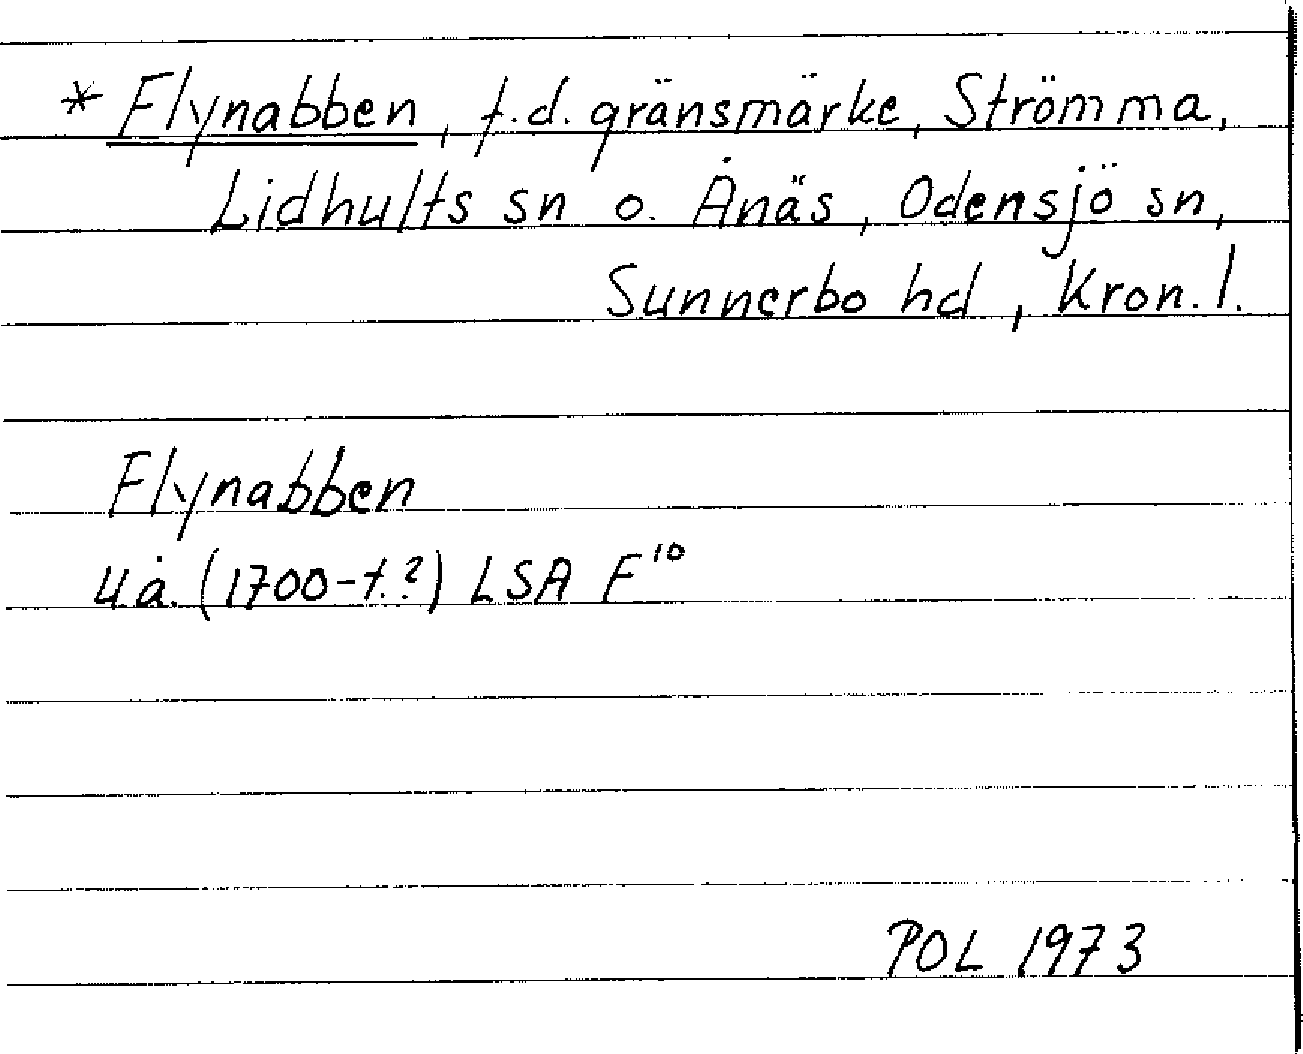 * Flynabben, f.d. gränsmärke, Strömma,
Lidhults sn o. Ånäs, Odensjö sn,
Sunnerbo hd, Kron. l.
Flynabben
u.å. (1700-t.?) LSA F¹⁰
POL 1973